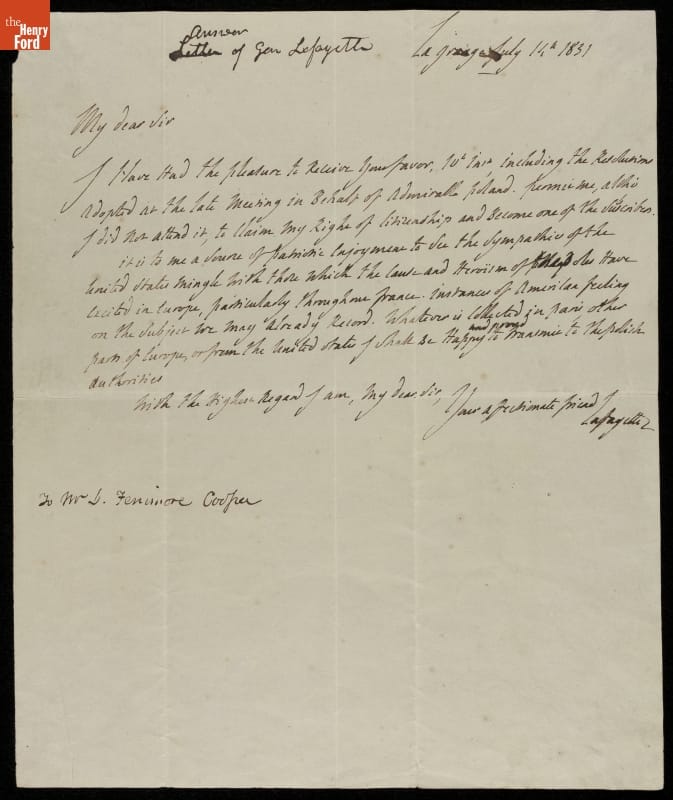 the
Henry
Ford
Answer
Letter of Gen Lafayette
La grange July 14th 1831
My dear Sir
I Have Had the pleasure to Receive Your favor, 10th inst including the Resolutions
adopted at the late Meeting in Behalf of Admirable poland. permit me, altho
I did not attend it, to claim My Right of Citizenship and Become one of the Subscribers.
it is to me a Source of patriotic Enjoyment to See the Sympathies of the
United States Mingle With those Which the Cause and Heroism of poland Have
Excited in Europe, particularly throughout france. instances of American feeling
on the Subject we May Already Record. Whatever is Collected in paris other
and proud
parts of Europe, or from the United States I Shall Be Happy to transmit to the polish
Authorities
With the Highest Regard I am, My dear Sir,
Your affectionate friend
Lafayette
To Mr Fenimore Cooper